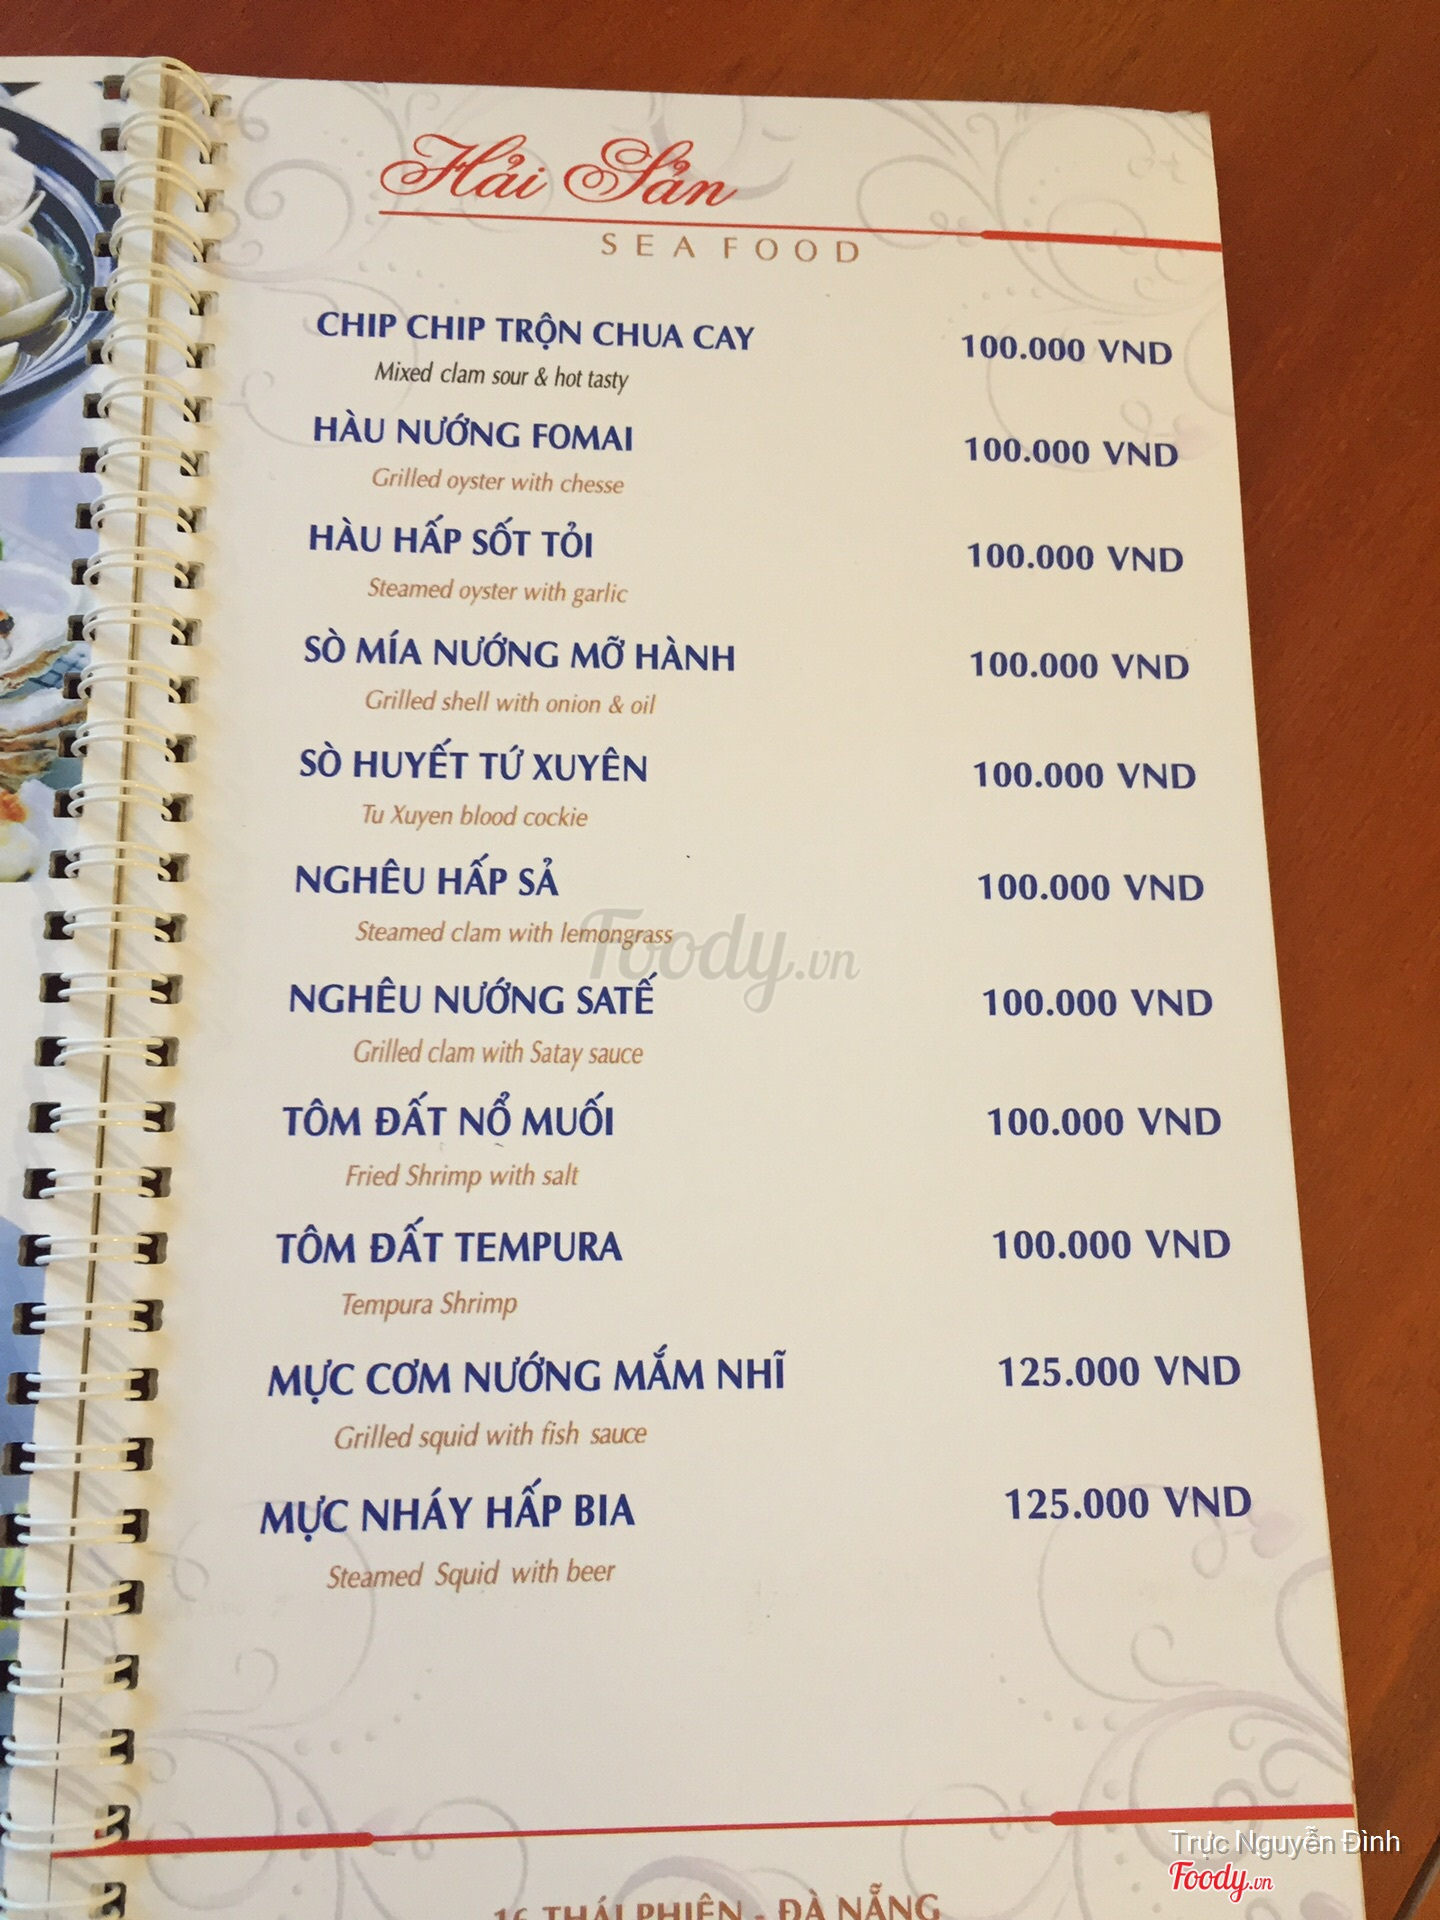 Hải Sản
SEA FOOD
CHIP CHIP TRỘN CHUA CAY 100.000 VND
Mixed clam sour & hot tasty
HÀU NƯỚNG FOMAI 100.000 VND
Grilled oyster with chesse
HÀU HẤP SỐT TỎI 100.000 VND
Steamed oyster with garlic
SÒ MÍA NƯỚNG MỠ HÀNH 100.000 VND
Grilled shell with onion & oil
SÒ HUYẾT TỨ XUYÊN 100.000 VND
Tu Xuyen blood cockie
NGHÊU HẤP SẢ 100.000 VND
Steamed clam with lemongrass
Foody.vn
NGHÊU NƯỚNG SATẾ 100.000 VND
Grilled clam with Satay sauce
TÔM ĐẤT NỔ MUỐI 100.000 VND
Fried Shrimp with salt
TÔM ĐẤT TEMPURA 100.000 VND
Tempura Shrimp
MỰC CƠM NƯỚNG MẮM NHĨ 125.000 VND
Grilled squid with fish sauce
MỰC NHÁY HẤP BIA 125.000 VND
Steamed Squid with beer
Trực Nguyễn Đình
Foody.vn
16 THÁI PHIÊN - ĐÀ NẴNG